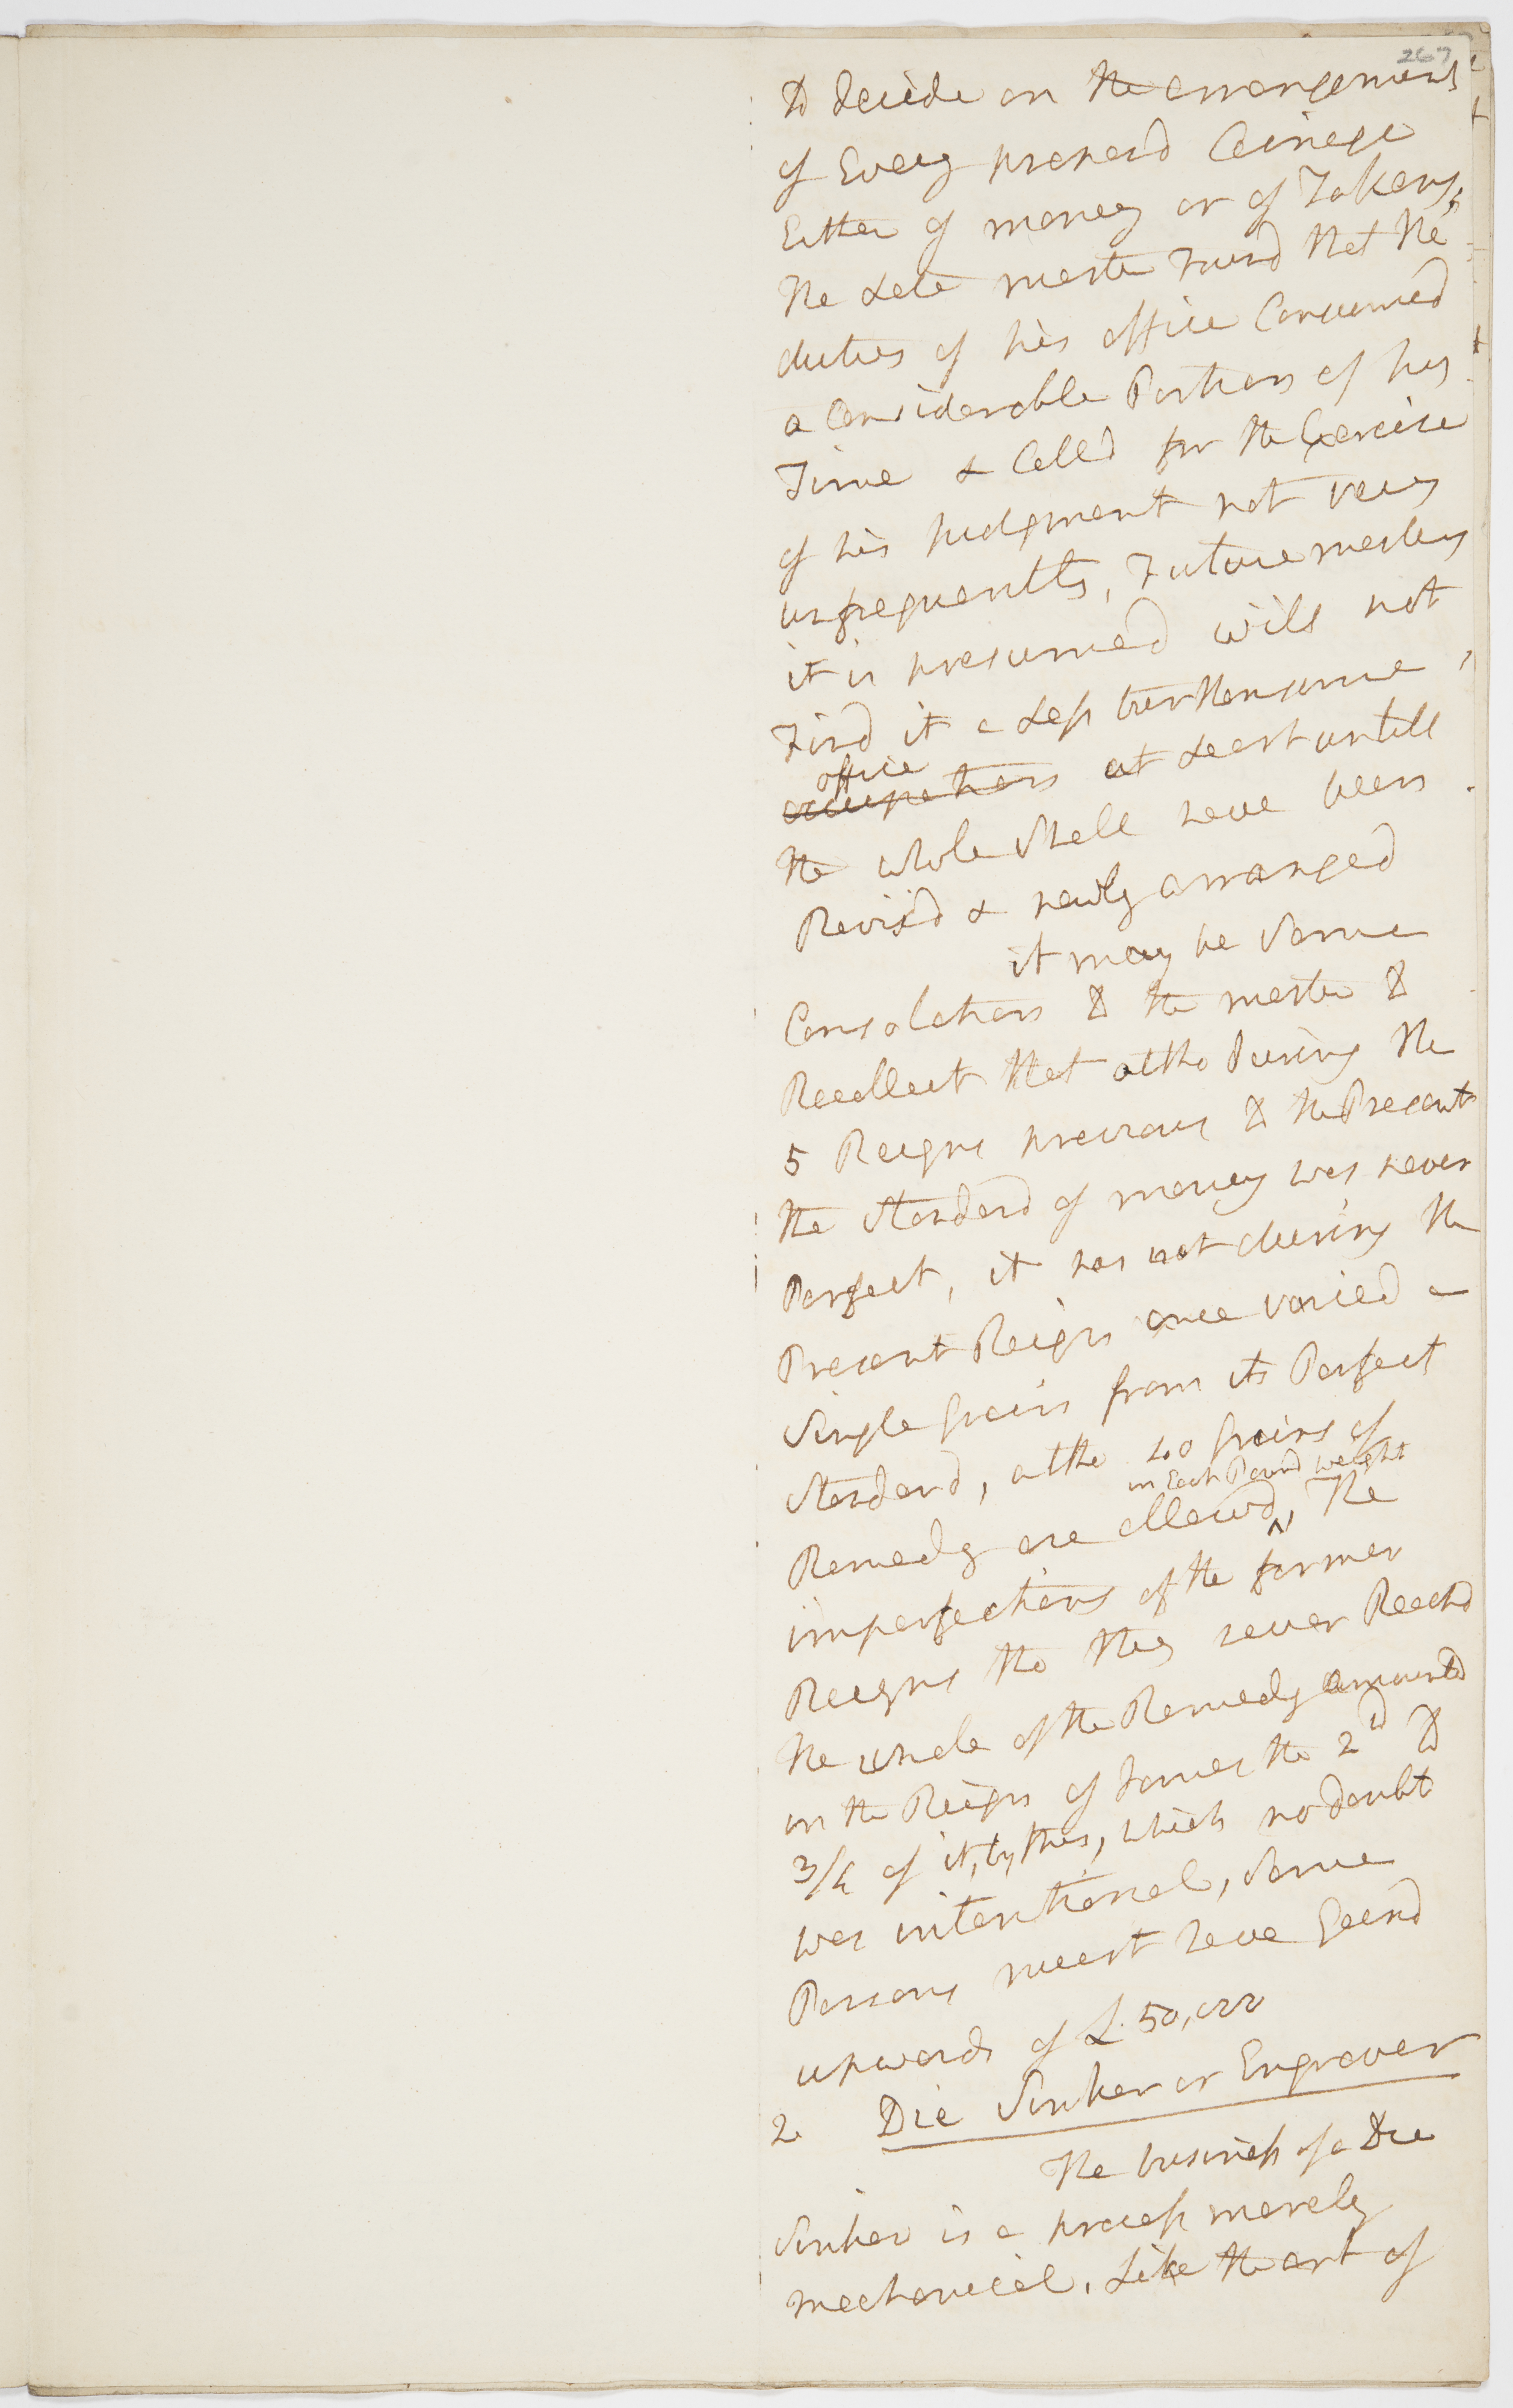 267
to decide on the arrangement
of Every proposd Coinage
Either of money or of Tokens,
the Late master Found that the
duties of his office Consumed
a Considerable Portion of his
Time & Calld for the Exercise
of his Judgment not very
unfrequently, Future masters
it is presumed will not
Find it a Less burthensome,
office
occupation at Least untill
the whole shall have been
Revis'd & newly arranged
it may be Some
Consolation to the master to
Recollect that altho During the
5 Reigns previous to the Present
the Standard of money was never
Perfect, it has not during the
Present Reign once varied a
Single Grain from its Perfect
Standard, altho 40 Grains of
in Each Pound weight
Remedy are allowd, The
imperfections of the former
Reigns tho they never Reachd
the whole of the Remedy amounted
in the Reign of James the 2d to
3/4 of it, by this, which no doubt
was intentional, Some
Persons must have Gaind
upwards of £.50,000
2 Die Sinker or Engraver
The business of a Die
Sinker is a process merely
mechanical, Like the art of